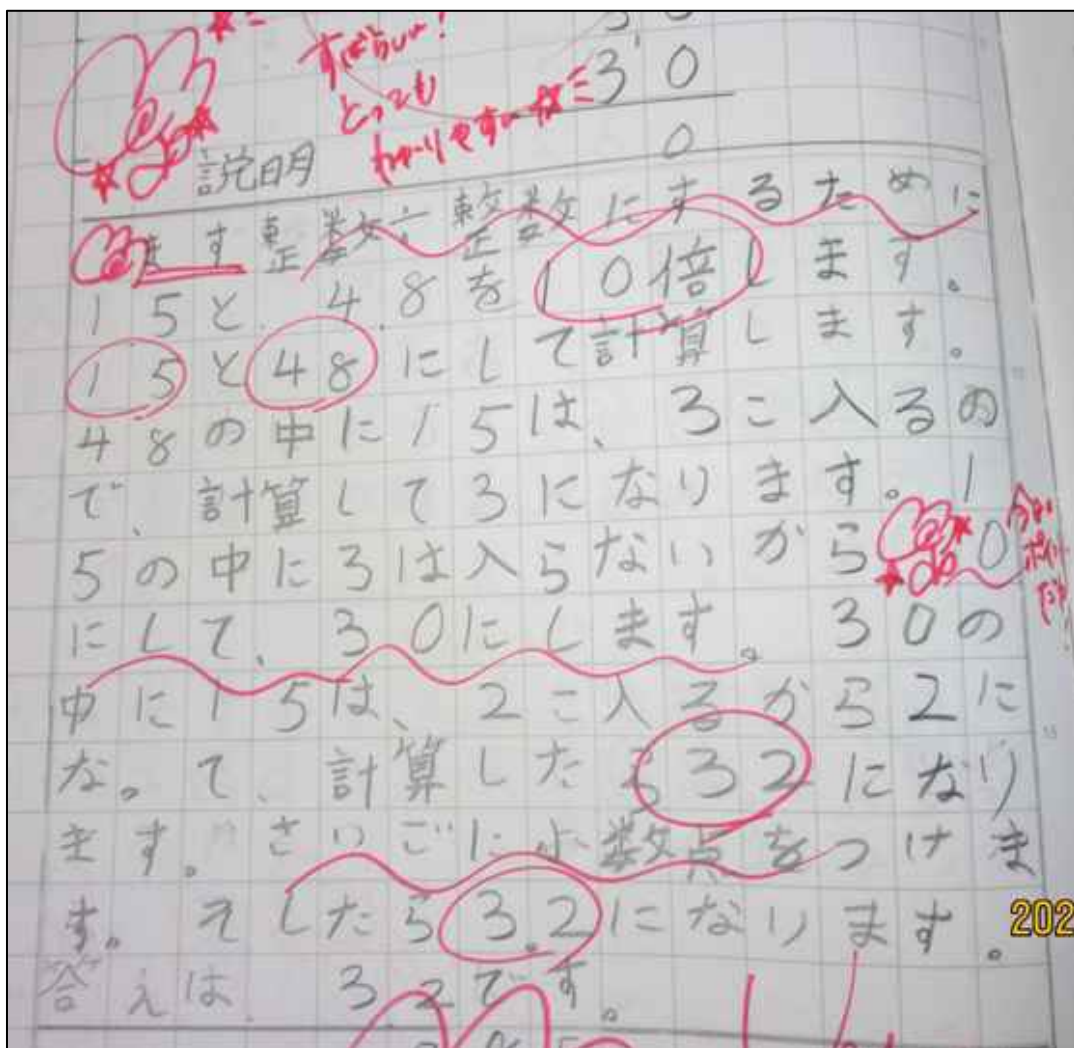 すばらしい!
とっても
わかりやすい
30
0
説明
まず整数÷整数にするために
15と4.8を10倍します。
15と48にして計算します。
48の中に15は、3こ入るの
で、計算して3になります。1
5の中に3は入らないから0
にして、30にします。30の
中に15は、2こ入るから2に
な。て、計算したら32になり
ます。さいごに小数点をつけま
す。そしたら3.2になります。
答えは、3.2です。
202